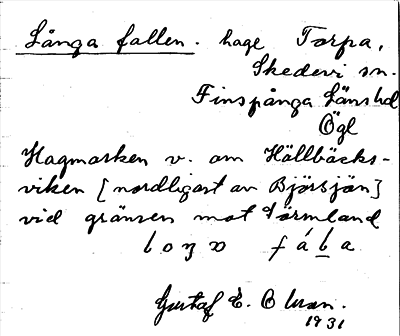 Långa fallen. hage Torpa,
Skedevi sn.
Finspånga Länshd
Ögl
Hagmarken v. om Hällbäcks-
viken [nordligast av Björsjön]
vid gränsen mot Sörmland
Gustaf E. Olsson.
1931